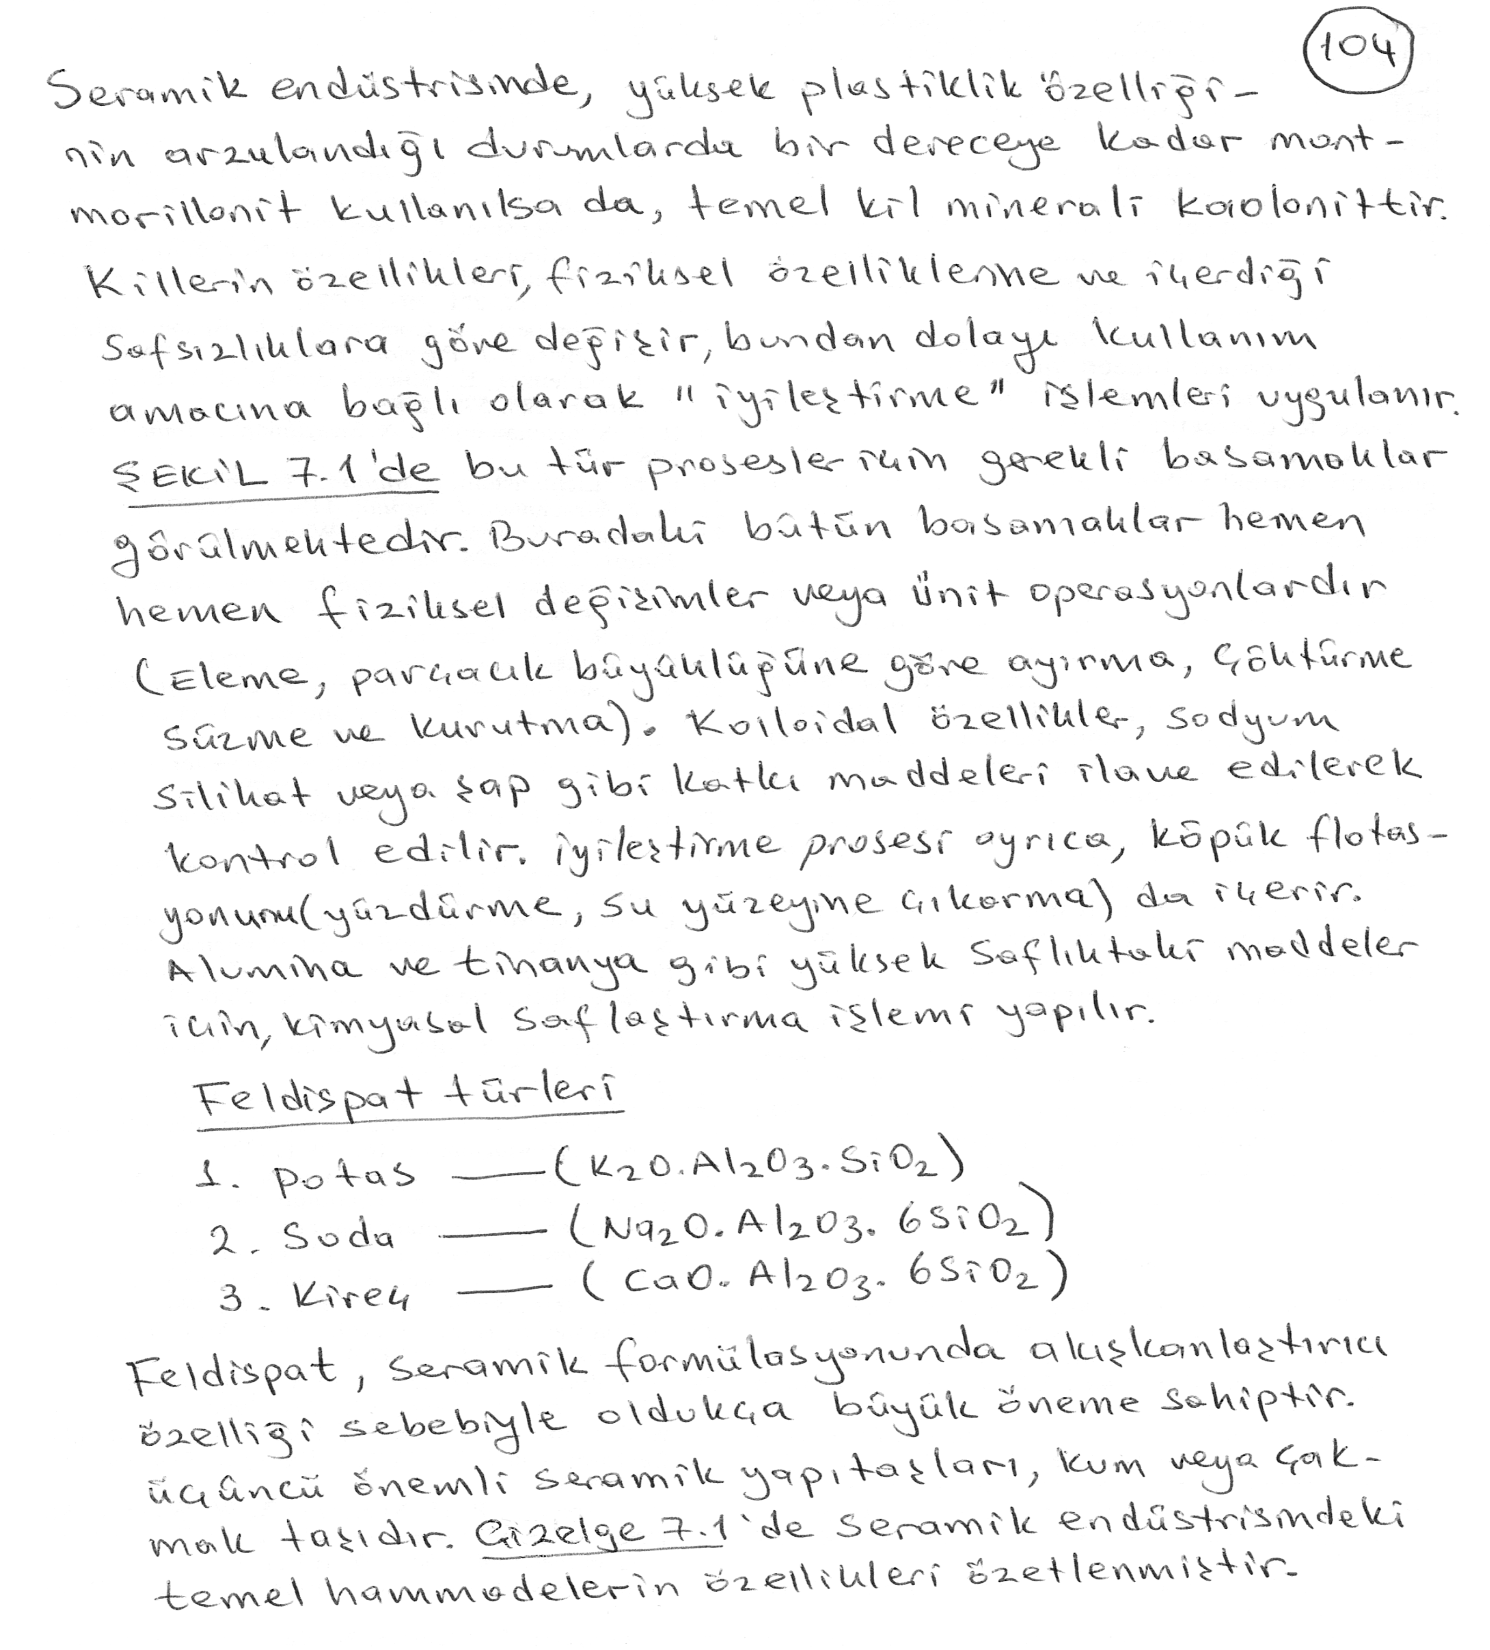 104
Seramik endüstrisinde, yüksek plastiklik özelliği-
nin arzulandığı durumlarda bir dereceye kadar mont-
morillonit kullanılsa da, temel kil minerali kaolonittir.
Killerin özellikleri, fiziksel özelliklerine ve içerdiği
safsızlıklara göre değişir, bundan dolayı kullanım
amacına bağlı olarak "iyileştirme" işlemleri uygulanır.
ŞEKİL 7.1'de bu tür prosesler için gerekli basamaklar
görülmektedir. Buradaki bütün basamaklar hemen
hemen fiziksel değişimler veya ünit operasyonlardır
(Eleme, parçacık büyüklüğüne göre ayırma, çöktürme
süzme ve kurutma). Kolloidal özellikler, sodyum
silikat veya şap gibi katkı maddeleri ilave edilerek
kontrol edilir. iyileştirme prosesi ayrıca, köpük flotas-
yonunu (yüzdürme, su yüzeyine çıkarma) da içerir.
Alumina ve tihanya gibi yüksek saflıktaki maddeler
için, kimyasal saflaştırma işlemi yapılır.
Feldispat türleri
1. potas — (K2O.Al2O3.SiO2)
2. Soda — (Na2O.Al2O3.6SiO2)
3. Kireç — (CaO.Al2O3.6SiO2)
Feldispat, seramik formülasyonunda akışkanlaştırıcı
özelliği sebebiyle oldukça büyük öneme sahiptir.
üçüncü önemli seramik yapıtaşları, kum veya çak-
mak taşıdır. Çizelge 7.1'de seramik endüstrisindeki
temel hammadelerin özellikleri özetlenmiştir.